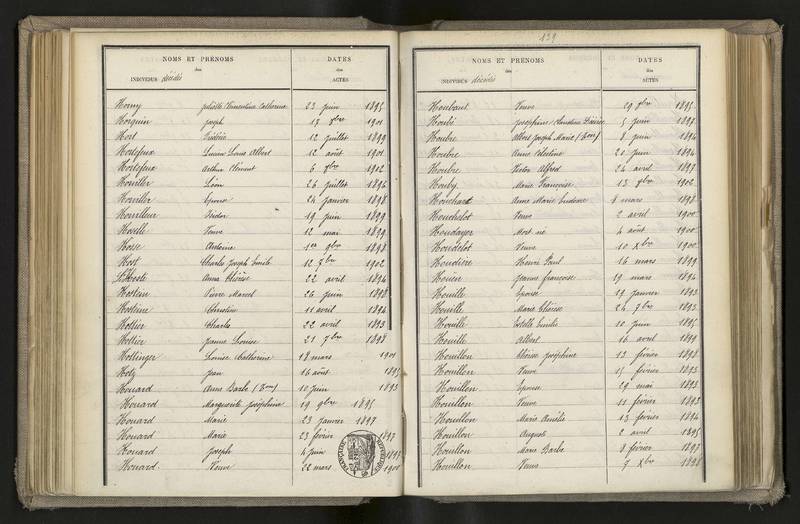 NOMS ET PRÉNOMS
des
INDIVIDUS décédés
DATES
des
ACTES
Horny 23 juin 1895
Horquin Joseph 1901
Hort Frédéric 12 juillet 1899
Hortefeux Lucien Louis Albert 12 août 1901
Hortefeux Arthur Clément 6 9bre 1902
Léon 26 juillet 1896
Epouse 24 janvier 1898
Isidor 19 juin 1899
Veuve 12 mai 1899
Hosse Antoine 1er 9bre 1898
Host Charles Joseph Emile 12 7bre 1902
L'Hoste Anna Thérèse 22 avril 1894
Hostein Pierre Marcel 26 juin 1898
Hosteine Christine 11 avril 1894
Hottier Charles 22 avril 1893
Hottier Jeanne Louise 21 7bre 1898
Hottinger Louise Catherine 18 mars 1901
Hotz Jean 16 août 1895
Houard Anne Barbe 10 juin 1893
Houard Marguerite Joséphine 19 9bre 1895
Houard Marie 23 janvier 1897
Houard Marie 23 février 1897
Houard Joseph 4 juin 1897
Houard Veuve 22 mars 1900
139
NOMS ET PRÉNOMS
des
INDIVIDUS décédés
DATES
des
ACTES
Houbaut Veuve 29 9bre 1895
Houbé Joséphine 5 juin 1898
Houbre Albert Joseph Marie 8 juin 1894
Houbre Anne Célestine 20 juin 1894
Houbre Victor Alfred 24 avril 1897
Houby Marie Françoise 13 9bre 1902
Houchard Anne Marie 8 mars 1898
Houchelot Veuve 2 avril 1900
Houdayer Mort né 4 août 1900
Houdelot Veuve 10 Xbre 1900
Houdière Henri Paul 16 mars 1899
Houén Jeanne françoise 19 mars 1894
Houille Epouse 19 janvier 1893
Houille Marie Thérèse 24 7bre 1893
Houille Estelle Emilie 10 juin 1895
Houille Albert 16 avril 1899
Houillon Thérèse Joséphine 12 février 1898
Houillon Veuve 15 février 1893
Houillon Epouse 29 mai 1893
Houillon Veuve 11 février 1893
Houillon Marie Amélie 13 février 1894
Houillon August 2 avril 1895
Houillon Marie Barbe 8 février 1897
Houillon Veuve 7 Xbre 1898